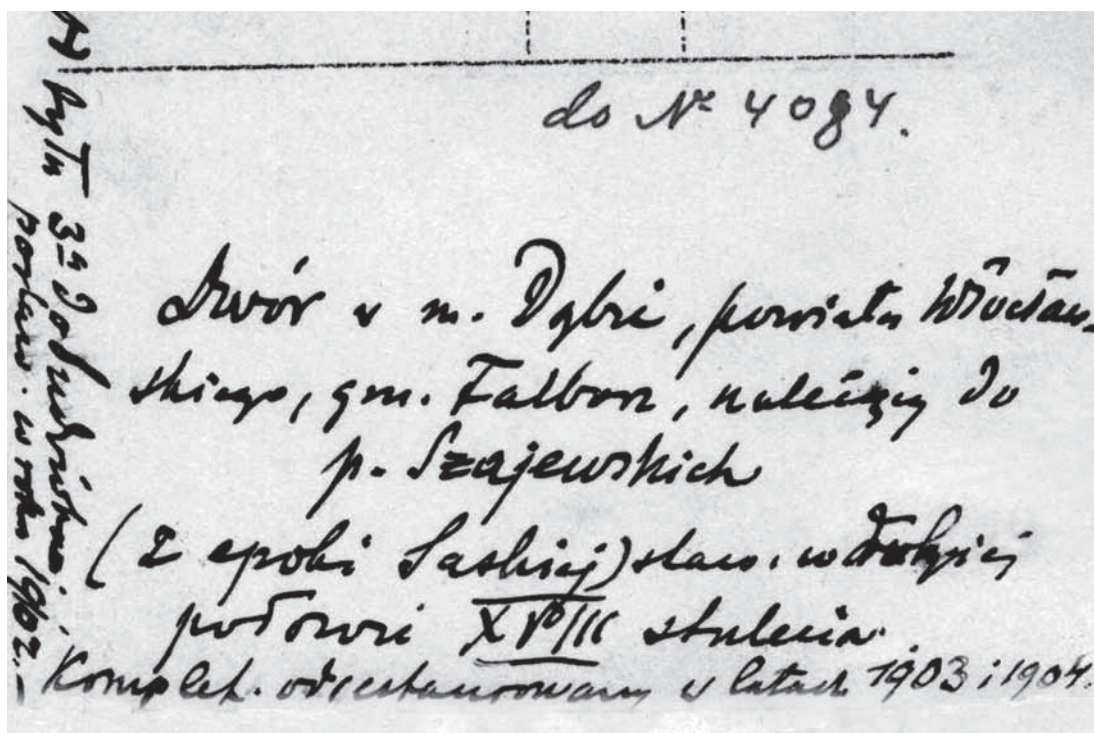 do № 4084.
Dwór w m. Dąbie, powiatu Włocław-
skiego, gm. Falborz, należący do
p. Szajewskich
(z epoki Saskiej) staw. w drugiej
połowie XVIII stulecia.
Komplet. odrestaurowany w latach 1903 i 1904.
w roku 1902.